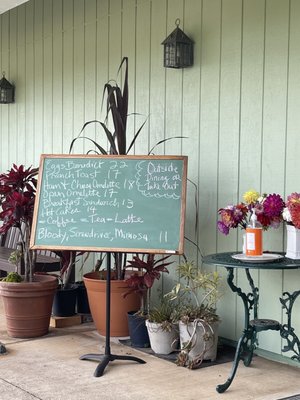 Eggs Benedict 22
French Toast 17
Ham & Cheese Omelette 18
Spam Omelette 17
Breakfast Sandwich 13
Hot Cakes 14
Coffee - Tea - Latte
Bloody, Screwdriver, Mimosa 11
Outside
Dining or
Take Out